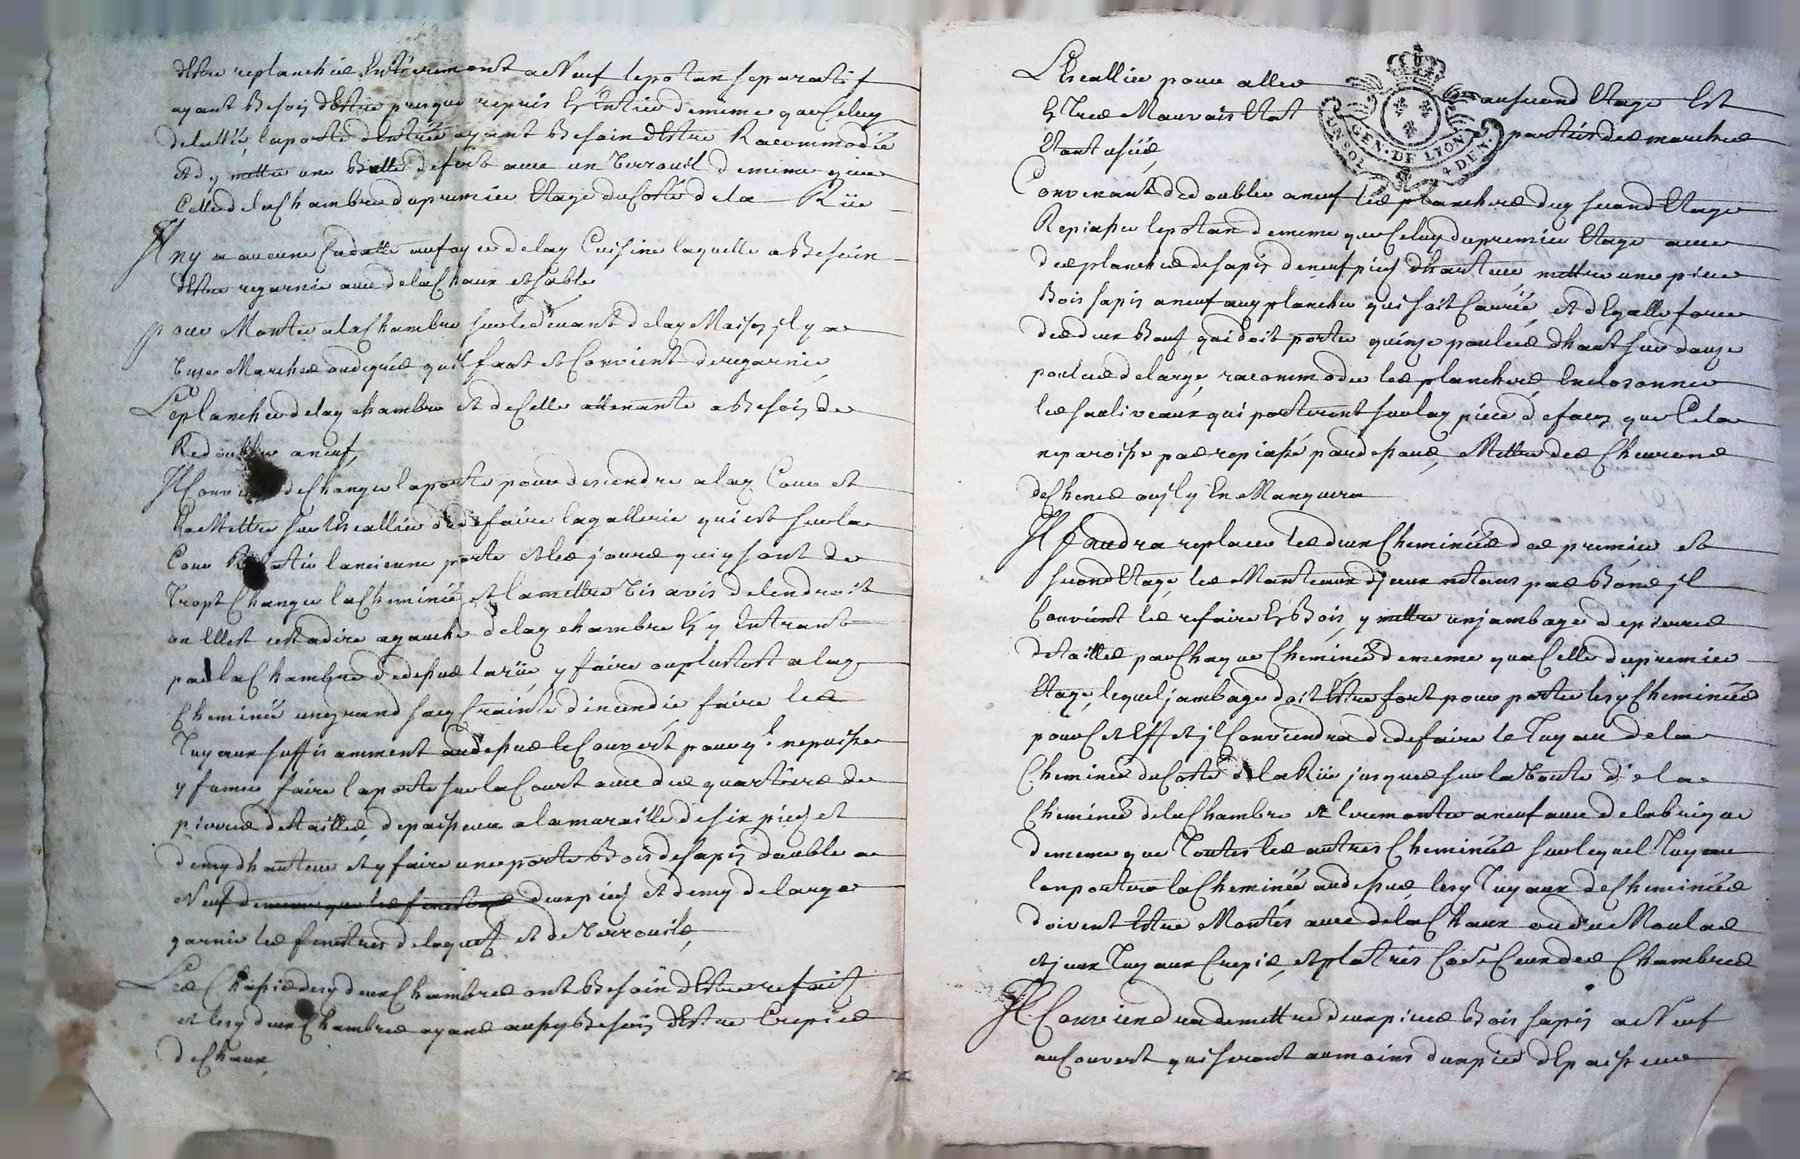 d'Estre replanchée Entierement a Neuf le potan separatif
ayant Besoiz d'Estre presque repris En Entier de meme que Celuy
la porte d'Entrée ayant Besoin d'Estre Racommodée
et d'y mettre une de fert avec un verrouil de meme que
Celle de la Chambre du premier Etage du Costé de la Rüe
Il n'y a aucune Cadette au foyer de lad Cuisine laquelle a Besoin
d'Estre regarnie avec de la Chaux et Sable
pour Monter a la Chambre sur le devant de lad Maison, il y a
Marches ou degrés qu'il faut et Convient de regarnir
Le plancher de lad chambre et de Celle attenante a Besoiz de
Redoubler a neuf,
Il Convient de Changer la porte pour descendre a lad Cour et
Remettre sur l'Escallier de faire la gallerie qui est sur la
Cour l'ancienne porte et les jours qui y sont de
tropt Changer la Cheminée, et la mettre vis avis de l'endroit
ou Elle est cest a dire a gauche de lad chambre En y Entrant
par la Chambre de dessus la rüe y faire ou plustost a lad
Cheminée un grand Crainte d'incendie faire les
Tuyaux suffisamment au dessus le Couvert pour qe ne puisse
y fumer, faire la porte sur la Court avec des quartiers de
pierres de tailles, depaisseur a la muraille de six pieds et
demy d'hauteur et y faire une porte Bois de sapiz double a
Neuf de meme que les fenestres deux pieds et demy de large
garnir les fenetres de et de verrouils,
Les desd deux Chambres ont Besoin d'Estre refait
et lesd deux Chambres ayant aussy Besoiz d'Estre Crepies
de Chaux,
L'Escallier pour aller au second Etage Est
En tres Mauvais Etat partie des marches
Etant usée,
Convenant de doubler a neuf les planchers dud second Etage
Repiasser le potan de meme que Celuy du premier Etage avec
des planches de sapiz de neuf pieds d'hauteur, mettre une piece
Bois sapiz a neuf aud plancher qui soit Carrée, et d'Egalle force
des deux Bouts qui doit porter quinze poulces d'haut sur douze
poulces de large, racommoder les planchers,
les soliveaux qui porteront sur lad piece de facon que Cela
ne paroisse pas repiassé par dessous, Mettre des Chevrons
de Chenes ou il y En Manquera
Il faudra replacer les deux Cheminées des premier et
second Etage, les Manteaux d'jceux n'etans pas Bons il
Convient les refaire En Bois, y mettre un jambage de pierres
de tailles par Chaque Cheminée de meme qua Celle du premier
Etage, lequel jambage doit Estre fort pour porter lesd Cheminées
pour Cet Effet il Conviendra de defaire le Tuyau de la
Cheminée du Costé de la Rüe jusques sur la voute de la
Cheminée de la Chambre et le remonter a neuf avec de la brique
de meme que Toutes les autres Cheminées sur lequel Tuyau
l'on portera la Cheminée au dessus lesd Tuyaux de Cheminées
doivent Estre Montés avec de la Chaux ou du Moulas
et jceux Tuyaux Crepis, et platrés Chambres
Il Conviendra de mettre deux pieces Bois sapiz a Neuf
au Couvert qui seront au moins d'un pied d'Epaisseur
GEN. DE LYON
UN SOL 4 DEN.